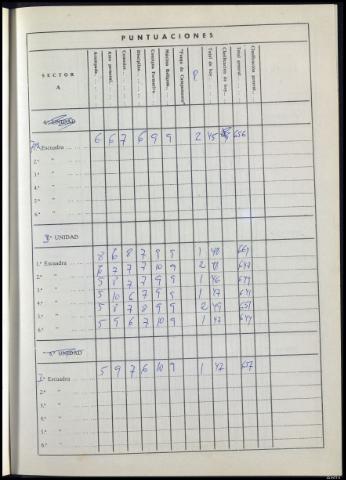 PUNTUACIONES
SECTOR
A
Acampada
Aseo personal
Comedor
Disciplina
Consigna Formativa
Mística Religiosa
"Fuego de Campamento"
Total de hoy
Clasificación de hoy
Total general
Clasificación general
UNIDAD
Escuadra 6 6 7 6 9 9 2 45 656
2.ª "
3.ª "
4.ª "
5.ª "
6.ª "
3.ª UNIDAD
1.ª Escuadra 8 6 8 7 9 9 1 48 661
2.ª " 6 7 7 7 10 9 2 48 647
3.ª " 5 8 7 7 9 9 1 46 644
4.ª " 5 10 6 7 9 9 1 47 641
5.ª " 5 8 7 8 9 9 2 49 651
6.ª " 5 9 6 7 10 9 1 47 644
UNIDAD
Escuadra 5 9 7 6 10 9 1 47 657
2.ª "
3.ª "
4.ª "
5.ª "
6.ª "